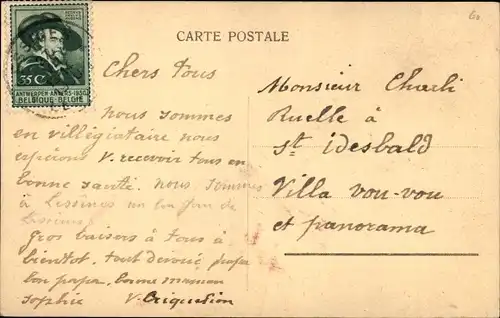 60
CARTE POSTALE
35C
ANTWERPEN-ANVERS-1930
BELGIQUE-BELGIË
Chers tous
nous sommes
en villégiataire nous
espérons v. recevoir tous en
bonne santé. nous sommes
à Lessines un de
Lessines
Gros baisers à tous à
bientot. tout dévoué
bon papa, bonne maman
sophie V. Criquelion
Monsieur Charli
Ruelle à
St Idesbald
Villa vou-vou
et panorama